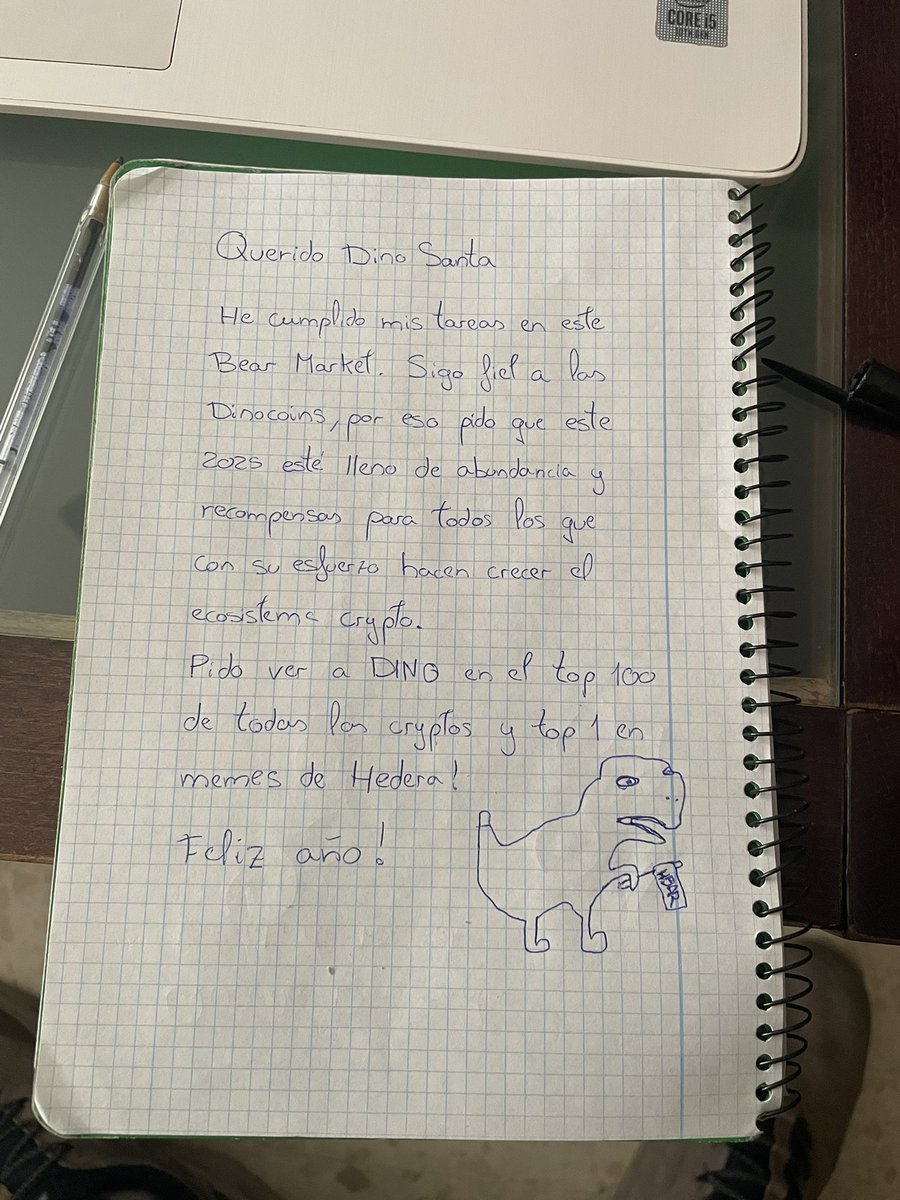 CORE i5
10TH GEN
Querido Dino Santa
He cumplido mis tareas en este
Bear Market. Sigo fiel a las
Dinocoins, por eso pido que este
2025 esté lleno de abundancia y
recompensas para todos los que
con su esfuerzo hacen crecer el
ecosistema crypto.
Pido ver a DINO en el top 100
de todas las cryptos y top 1 en
memes de Hedera!
Feliz año!
HBAR